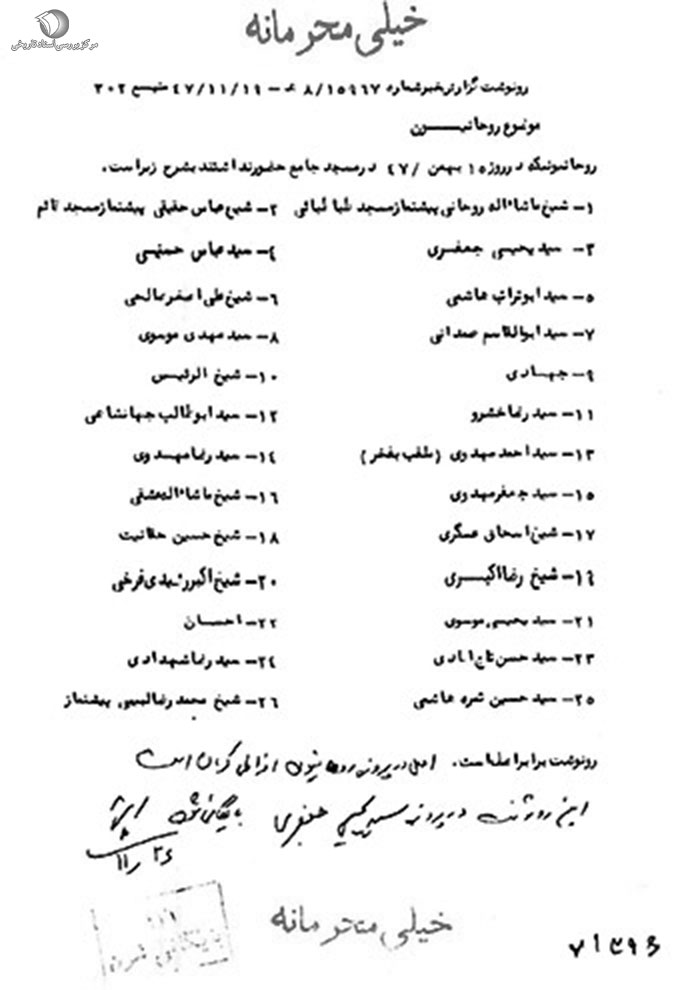 مرکز بررسی اسناد تاریخی
خیلی محرمانه
رونوشت گزارش خبر شماره ۱۵۹۶۷/۸ هـ - ۴۷/۱۱/۱۹ منبع ۳۰۲
موضوع روحانیون
روحانیونیکه در روز ۱۵ بهمن /۴۷ در مسجد جامع حضور نداشتند بشرح زیر است.
۱- شیخ ماشاءاله روحانی پیشنماز مسجد طباطبائی ۲- شیخ عباس حقیقی پیشنماز مسجد قائم
۳- سید یحیی جعفری ۴- سید عباس حسینی
۵- سید ابوتراب هاشمی ۶- شیخ علی اصغر صالحی
۷- سید ابوالقاسم صمدانی ۸- سید مهدی موسوی
۹- جهادی ۱۰- شیخ الرئیس
۱۱- سید رضا خشرو ۱۲- سید ابوطالب جهانشاهی
۱۳- سید احمد مهدوی (ملقب بفخر) ۱۴- سید رضا مهدوی
۱۵- سید جعفر مهدوی ۱۶- شیخ ماشاءاله عشقی
۱۷- شیخ اسحاق عسگری ۱۸- شیخ حسین حقانیت
۱۹- شیخ رضا اکبری ۲۰- شیخ اکبر رشیدی فرخی
۲۱- سید یحیی موسوی ۲۲- احسان
۲۳- سید حسن تاج آبادی ۲۴- سید رضا شهدادی
۲۵- سید حسین ثمره هاشمی ۲۶- شیخ محمد رضا لبیبی پیشنماز
رونوشت برابر اصل است. اصل در پرونده روحانیون اهالی کرمان است
این رونوشت در پرونده سید یحیی جعفری بایگانی شود
۱۱/۲۶
خیلی محرمانه
بایگانی شد